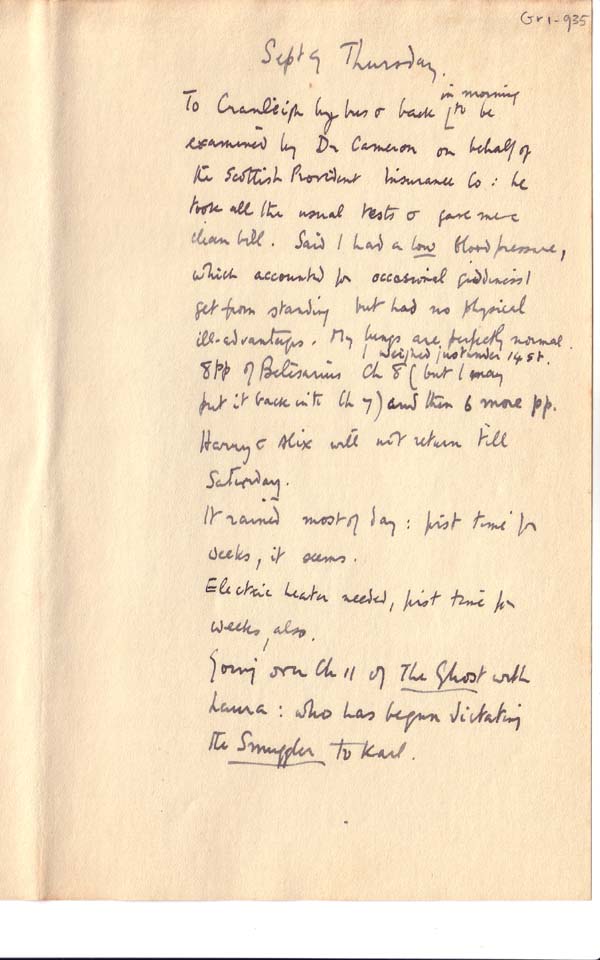 Gr1-935
Sept 9 Thursday.
in morning
To Cranleigh by bus & back to be
examined by Dr Cameron on behalf of
the Scottish Provident Insurance Co: he
took all the usual tests & gave me a
clean bill. Said I had a low blood pressure,
which accounted for occasional giddiness I
get from standing but had no physical
ill-advantages. My lungs are perfectly normal.
I weighed just under 14 st.
8 pp of Belisarius Ch 8 (but I may
put it back into Ch 7) and then 6 more pp.
Harry & Alix will not return till
Saturday.
It rained most of day: first time for
weeks, it seems.
Electric heater needed, first time for
weeks, also.
Going over Ch 11 of The Ghost with
Laura: who has begun dictating
the Smuggler to Karl.